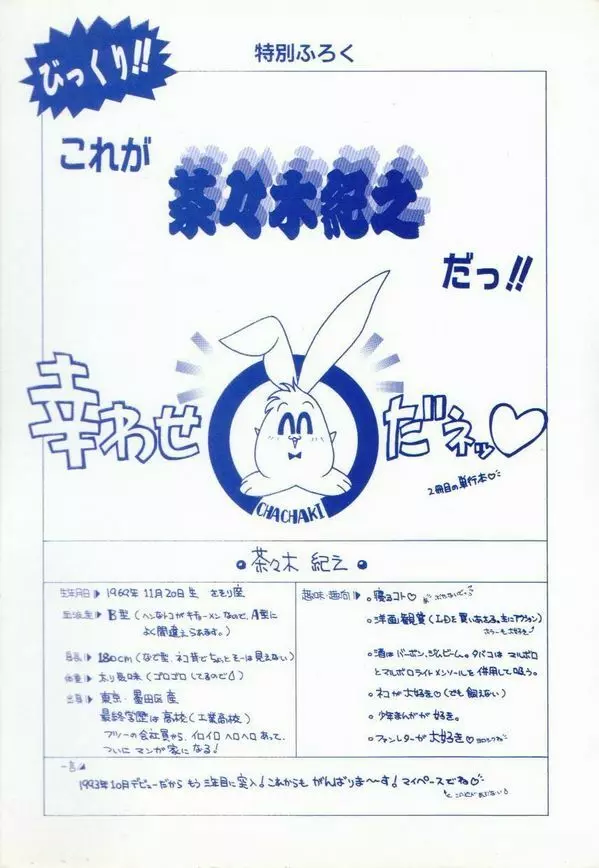 びっくり!!
特別ふろく
これが
茶々木紀之
だっ!!
幸わせ
だネッ♡
CHACHAKI
2冊目の単行本♡
茶々木 紀之
生年月日▶ 1969年 11月20日生 さそり座
血液型▶ B型(ヘンなトコがキチョーメンなので、A型に
よく間違えられます。)
身長▶ 180cm(なで型、ネコ背でちょっとそーは見えない)
体重▶ 太り気味(ゴロゴロしてるので)
出身▶ 東京・墨田区産
最終学歴は高校(工業高校)
フツーの会社員から、イロイロヘロヘロあって、
ついにマンガ家になる!
趣味・趣向▶ 。寝るコト♡
。洋画観賞(LDを買いあさる。主にアクション)
ホラーも大好き
。酒はバーボン、ジムビーム。タバコは マルボロ
とマルボロライトメンソールを併用して吸う。
。ネコが大好き♡(でも飼えない)
。少年まんがが、好き。
。ファンレターが大好き♡
一言
1993年10月デビューだから もう三年目に突入!これからも がんばりま〜す!マイペースでね♡